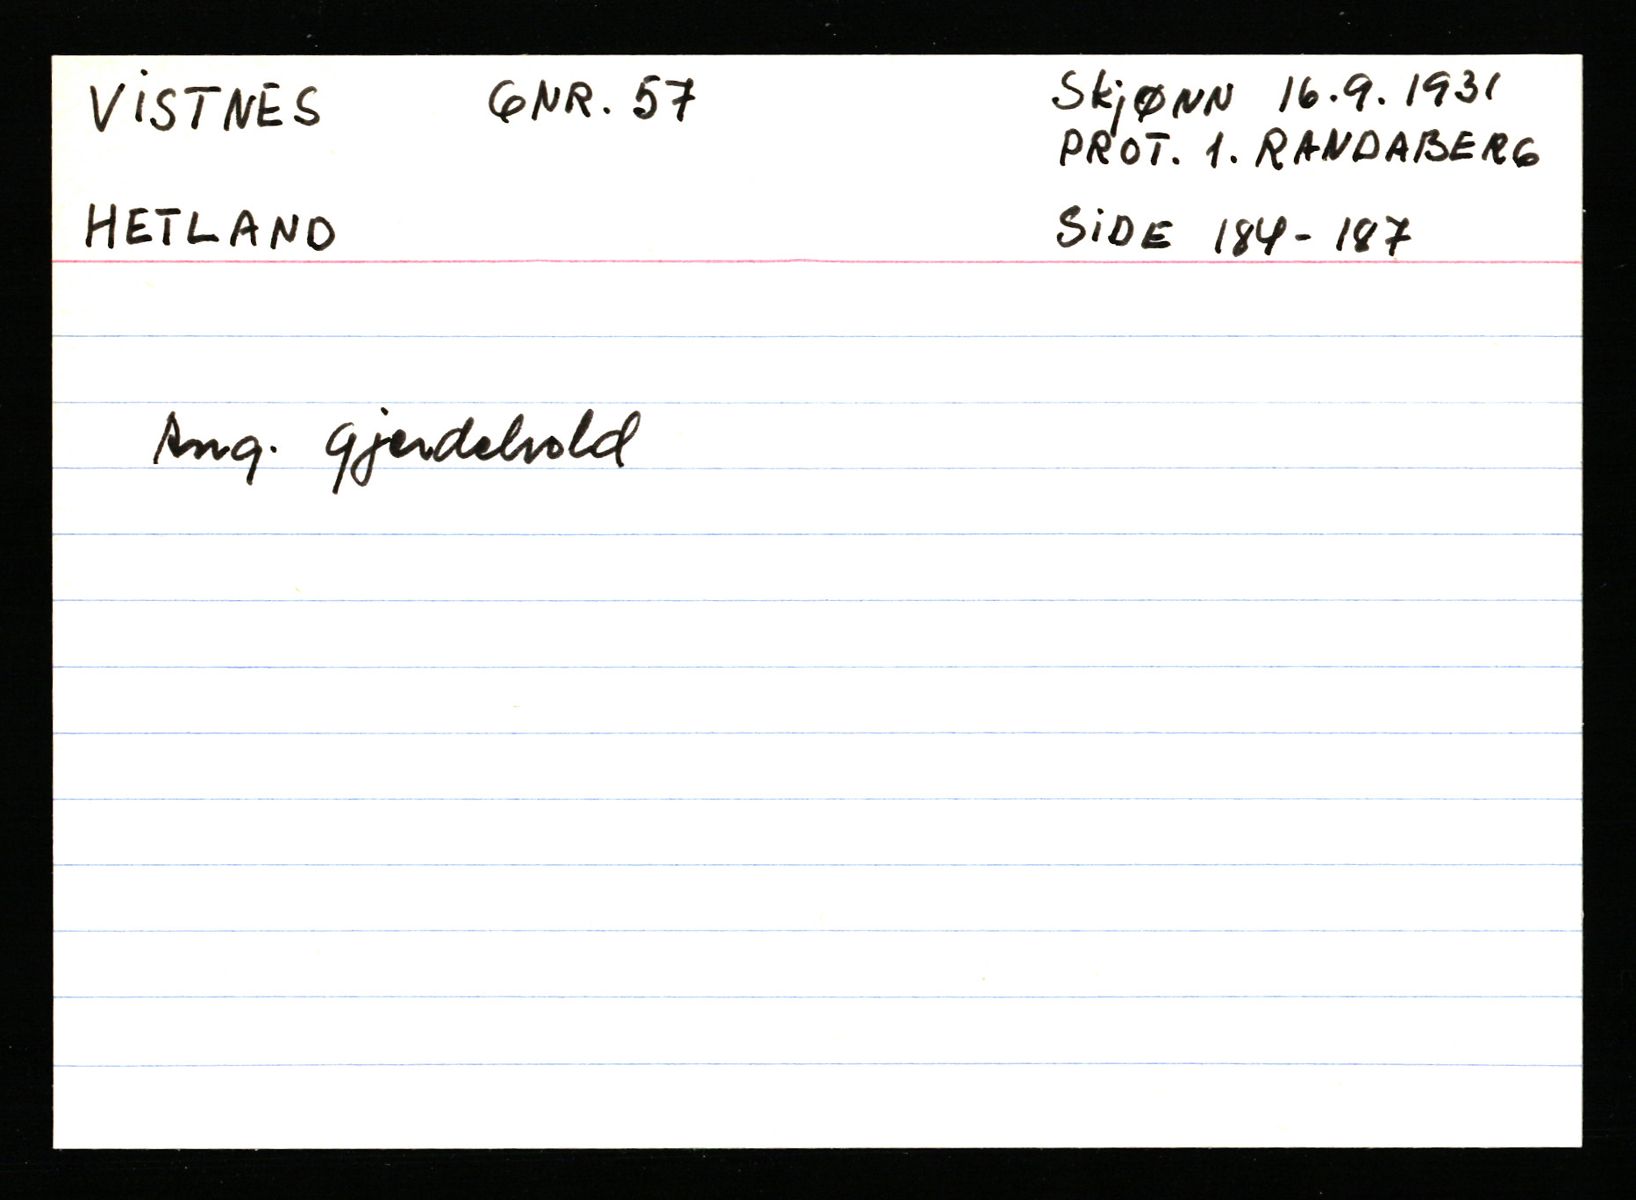 VISTNES GNR. 57 SkjØNN 16.9.1931
PROT. 1. RANDABERG
HETLAND SIDE 184-187
Ang. gjerdehold